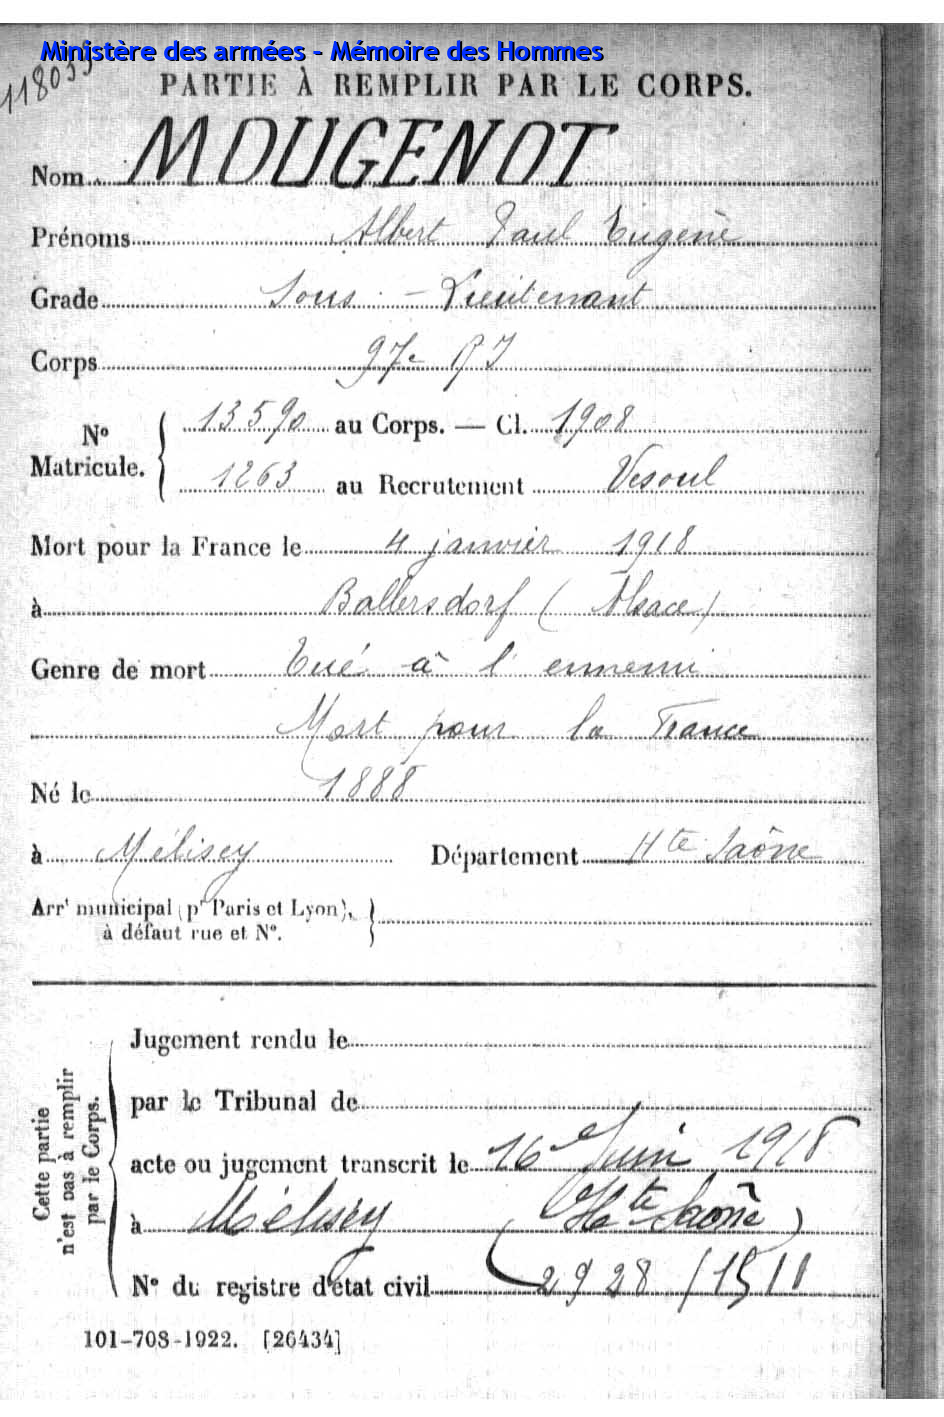 Ministère des armées - Mémoire des Hommes
118033
PARTIE À REMPLIR PAR LE CORPS.
Nom MOUGENOT
Prénoms Albert Paul Eugène
Grade Sous-Lieutenant
Corps 97e RI
No Matricule. { 13590 au Corps. — Cl. 1908
1263 au Recrutement Vesoul
Mort pour la France le 4 janvier 1918
à Ballersdorf (Alsace)
Genre de mort Tué à l'ennemi
Mort pour la France
Né le 1888
à Mélisey Département Hte Saône
Arrt municipal (pr Paris et Lyon),
à défaut rue et No.
Cette partie n'est pas à remplir par le Corps.
Jugement rendu le
par le Tribunal de
acte ou jugement transcrit le 16 Juin 1918
à Mélisey (Hte Saône)
No du registre d'état civil 2928/1511
101-708-1922. [26434]